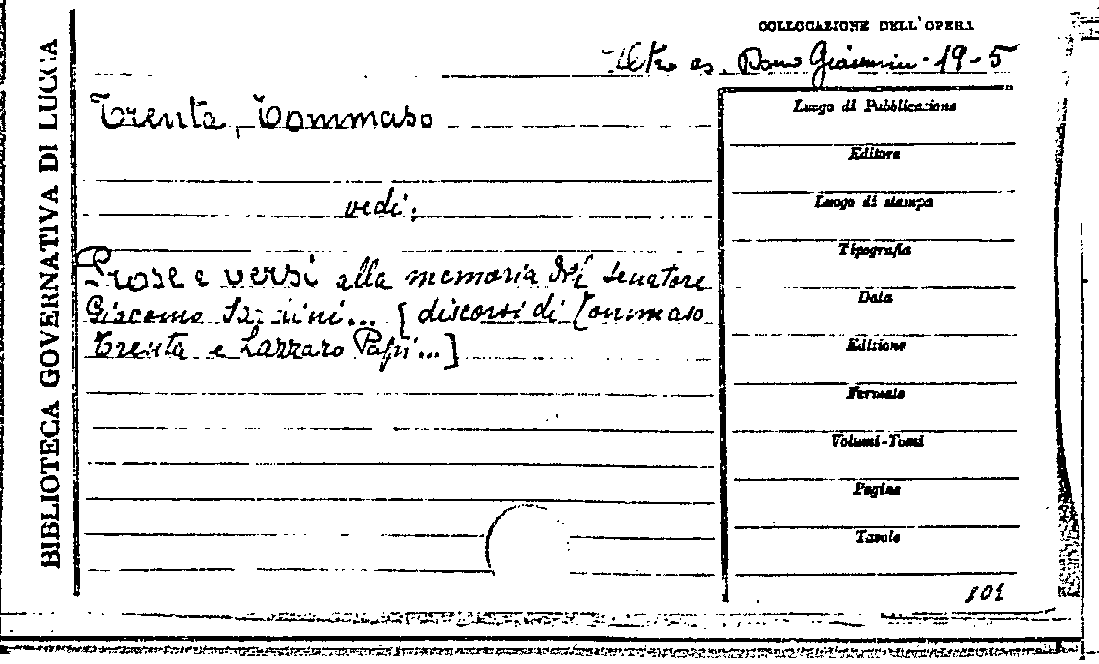 BIBLIOTECA GOVERNATIVA DI LUCCA
COLLOCAZIONE DELL'OPERA
es. Dono Giannini - 19-5
Trenta, Tommaso
vedi:
Prose e versi alla memoria del senatore
Giacomo ... [discorsi di Tommaso
Trenta e Lazzaro Papi...]
Luogo di Pubblicazione
Editore
Luogo di stampa
Tipografia
Data
Edizione
Formato
Volumi-Tomi
Pagine
Tavole
801